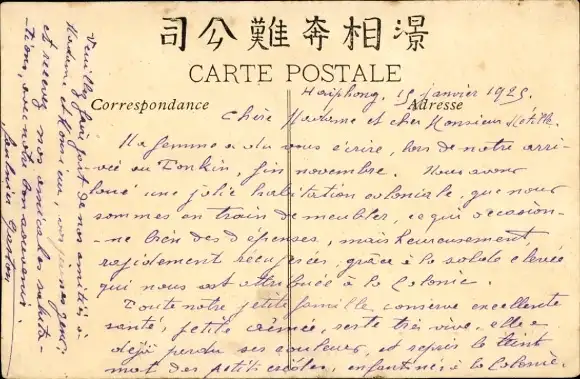 司公難奔相澋
CARTE POSTALE
Correspondance
Adresse
Haiphong, 15 janvier 1925.
Chère Madame et cher Monsieur
Ma femme a dû vous écrire, lors de notre arri-
vée au Tonkin, fin novembre. Nous avons
loué une jolie habitation coloniale, que nous
sommes en train de meubler, ce qui occasion-
-ne bien des dépenses, mais heureusement,
rapidement récupérées, grâce à la solde élevée
qui nous est attribuée à la Colonie.
Toute notre petite famille conserve excellente
santé, petite aimée, reste très vive, elle a
déjà perdu ses couleurs, et repris le teint
mat des petits créoles, enfantines à la Colonie.
Veuillez faire part de nos amitiés à
Madame et Monsieur, vos jeunes gens,
et recevez nos amicales saluta-
-tions, avec notre bon souvenir.
Gaston